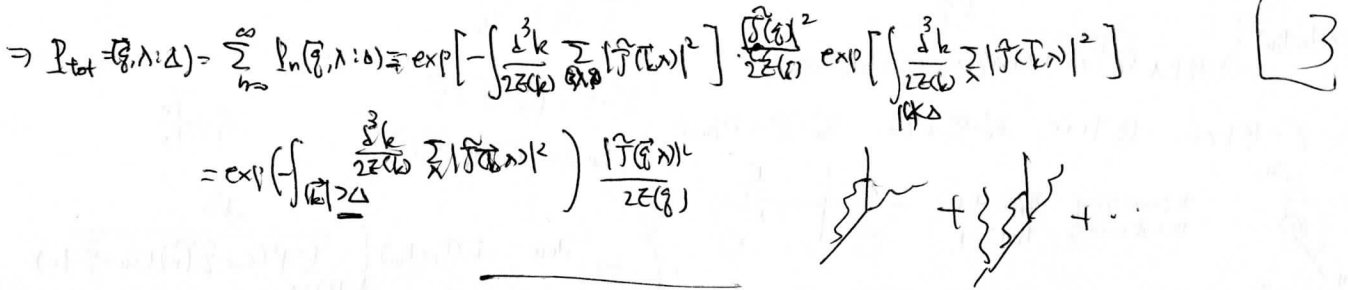 ⇒ P_tot(q⃗,λ:Δ) = ∑_{n=0}^{∞} P_n(q⃗,λ:Δ) = exp[-∫ d³k/2E(k) ∑ |J̃(k⃗,λ)|²] · |J̃(q)|²/2E(q) exp[∫_{|k|<Δ} d³k/2E(k) ∑_λ |J̃(k⃗,λ)|²] 3
= exp(-∫_{|k⃗|>Δ} d³k/2E(k) ∑_λ |J̃(k⃗,λ)|²) |J̃(q⃗,λ)|²/2E(q) + + ⋯